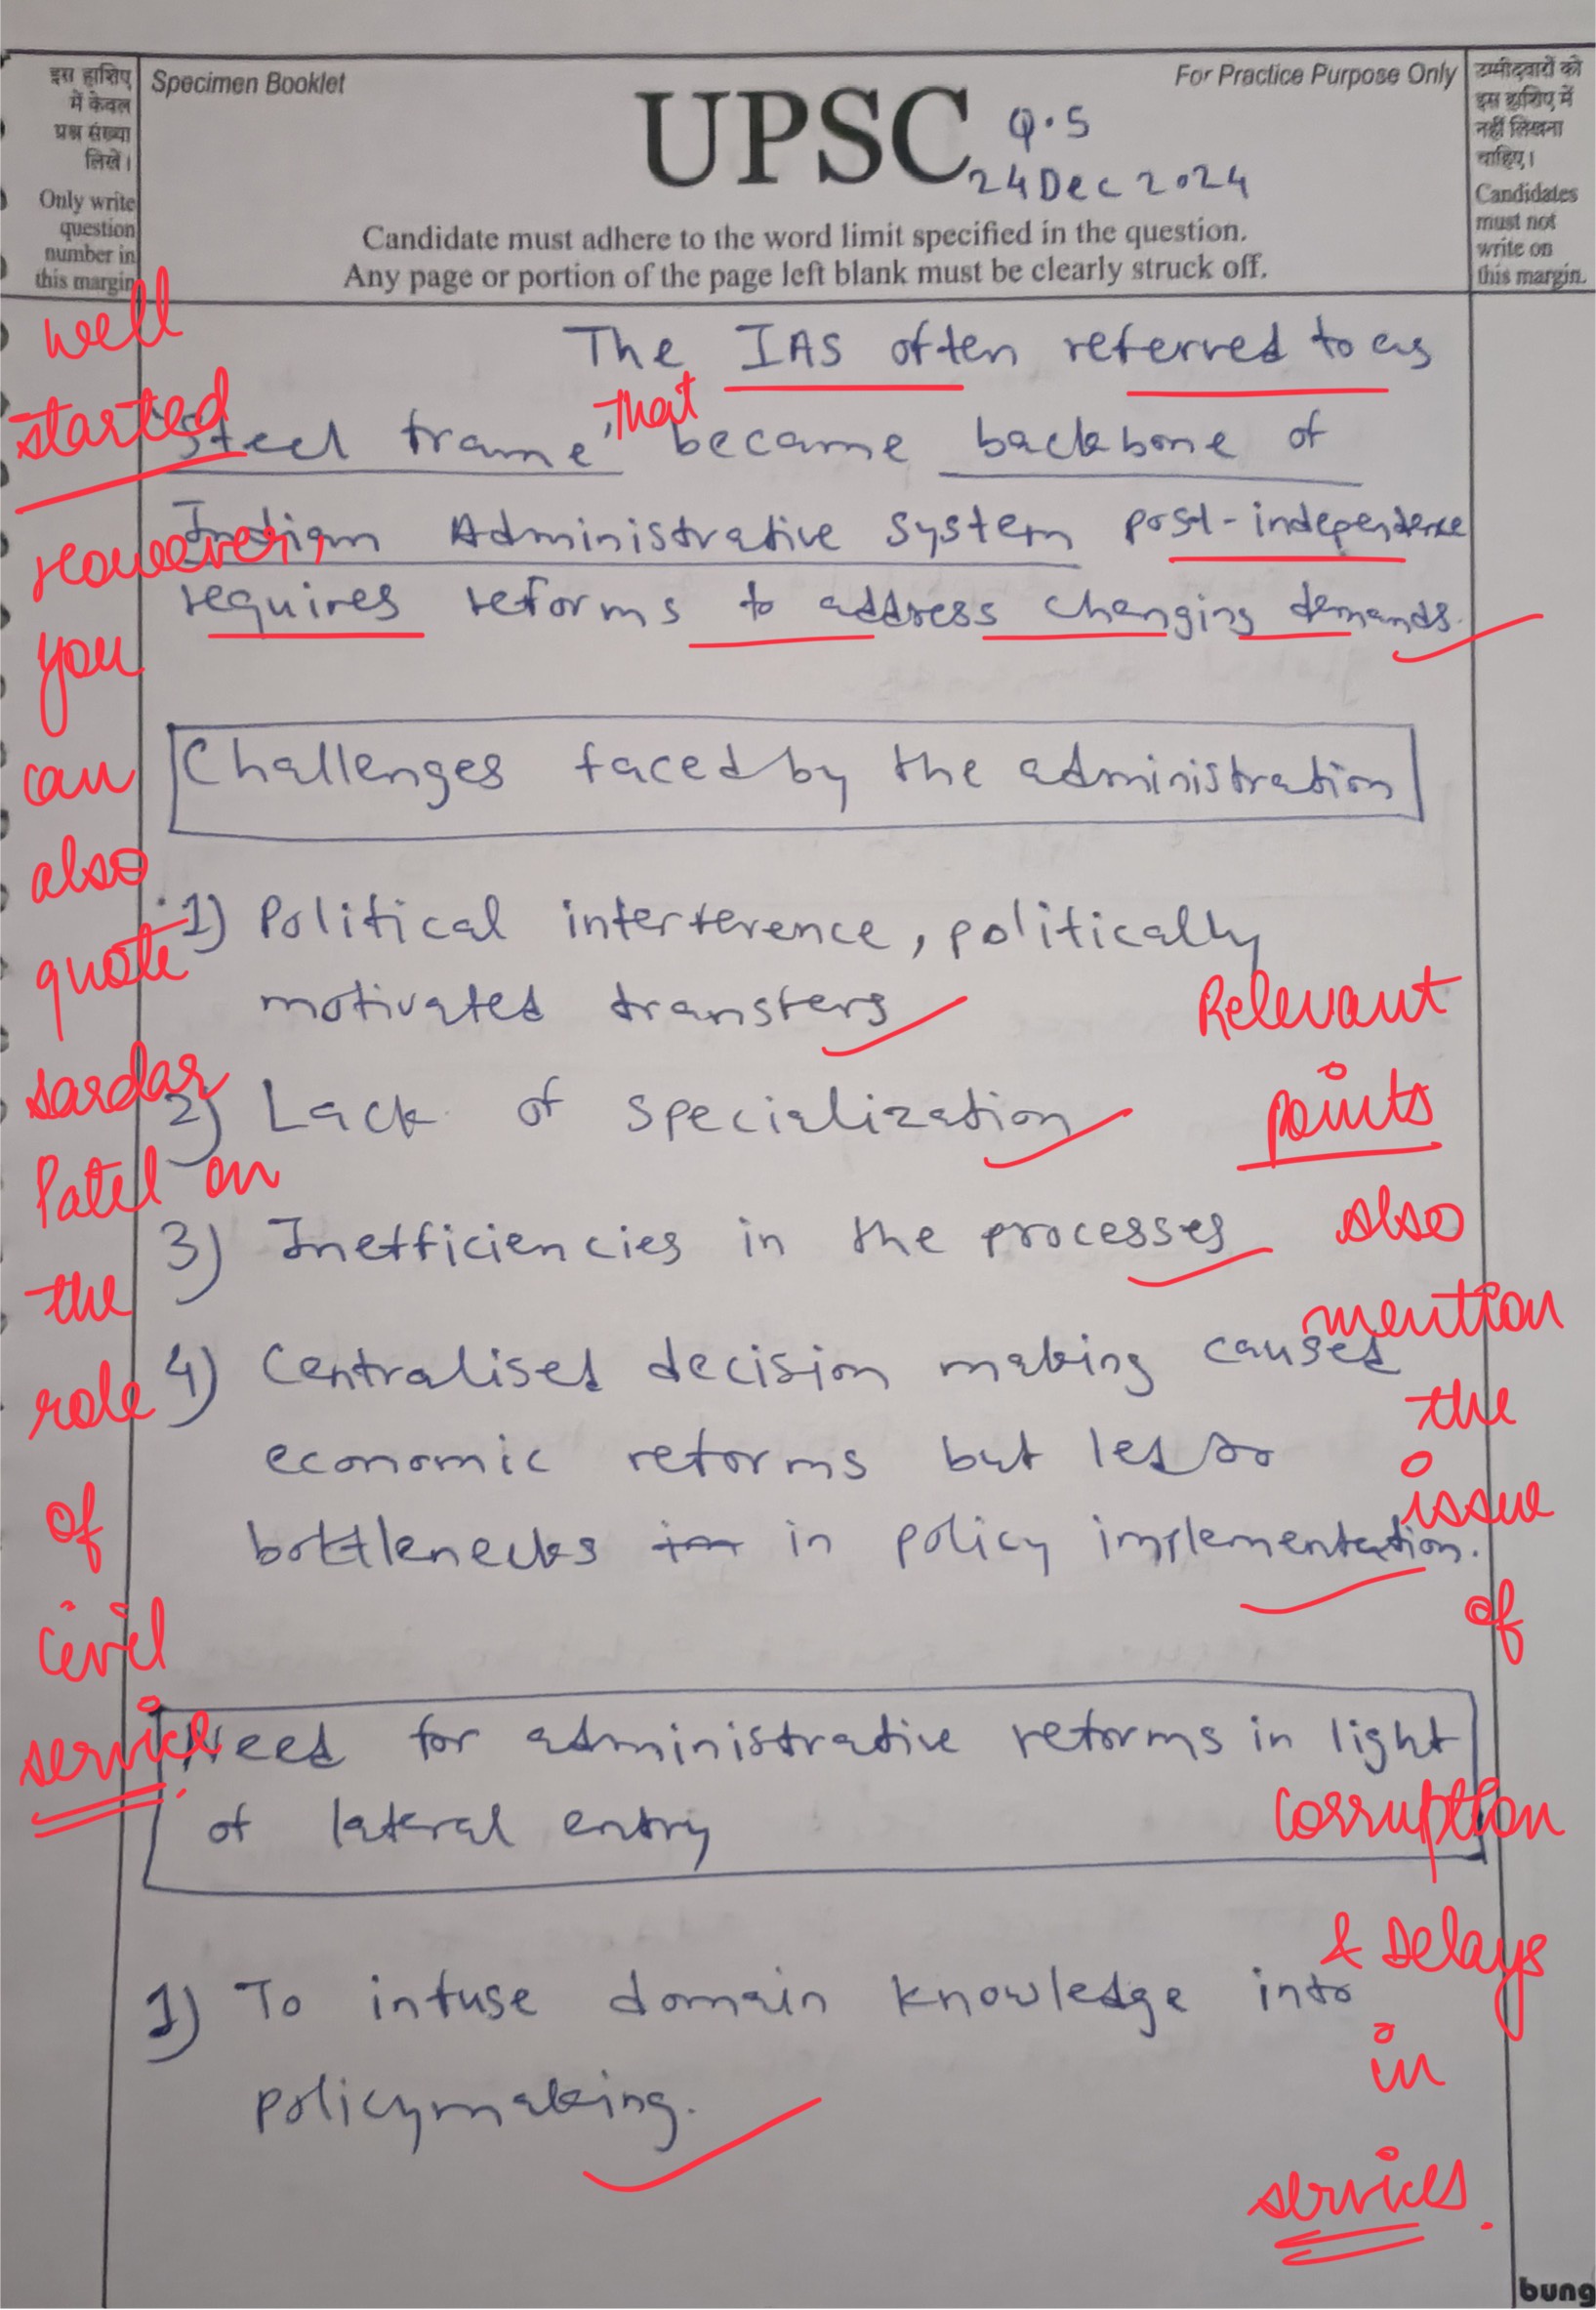 इस हाशिए
में केवल
प्रश्न संख्या
लिखें।
Only write
question
number in
this margin
Specimen Booklet
For Practice Purpose Only
UPSC
Q.5
24 Dec 2024
Candidate must adhere to the word limit specified in the question.
Any page or portion of the page left blank must be clearly struck off.
उम्मीदवारों को
इस हाशिए में
नहीं लिखना
चाहिए।
Candidates
must not
write on
this margin.
The IAS often referred to as
'Steel frame' that became backbone of
Indian Administrative system post-independence
requires reforms to address changing demands.
Challenges faced by the administration
1) Political interference, politically
motivated transfers
2) Lack of specialization
3) Inefficiencies in the processes
4) Centralised decision making caused
economic reforms but led to
bottlenecks in policy implementation.
Need for administrative reforms in light
of lateral entry
1) To infuse domain knowledge into
policymaking.
well
started
However,
you
can
also
quote
sardar
Patel on
the
role
of
civil
service.
Relevant
points
also
mention
the
issue
of
corruption
& Delays
in
services.
bung